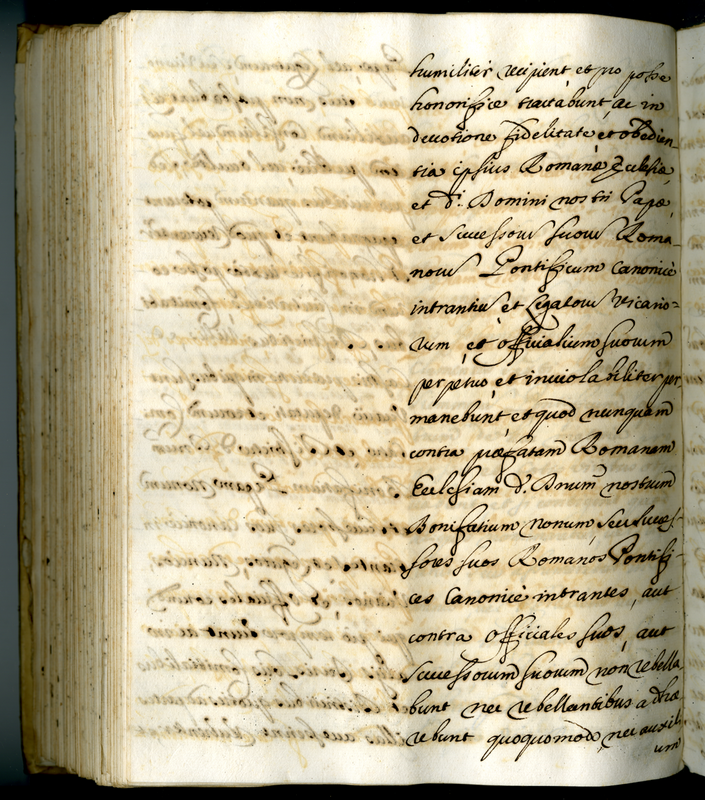 humiliter recipient et pro posse
honorifice tractabunt, ac in
devotione fidelitate et obedien_
tia ipsius Romanæ Ecclesiæ
et d.ⁱ Domini nostri Papæ,
et successorũ suorũ Roma_
norũ Pontificum Canonicè
intrantiũ, et Legatorũ Vicario=
rum, et officialium suorum
perpetuò, et inviolabiliter per
manebunt, et quod nunquam
contra præfatam Romanam
Ecclesiam d.ᵐ Dnum nostrum
Bonifatium nonum, seu succes-
sores suos Romanos Pontifi-
ces Canonicè intrantes, aut
contra officiales suos, aut
successorum suorum non rebella
bunt nec rebellantibus adhæ
rebunt quoquomodo, nec auxili
um